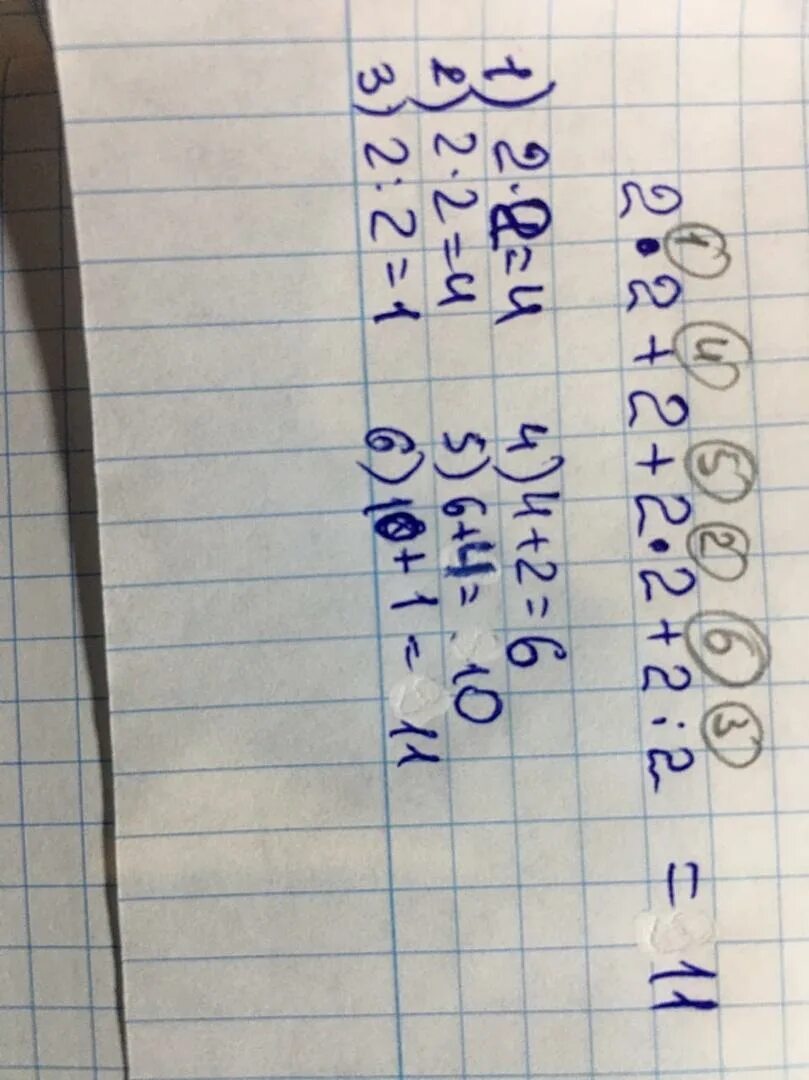 ① ④ ⑤ ② ⑥ ③
2·2+2+2·2+2:2 = 11
1) 2·2=4
2) 2·2=4
3) 2:2=1
4) 4+2=6
5) 6+4= 10
6) 10+1= 11